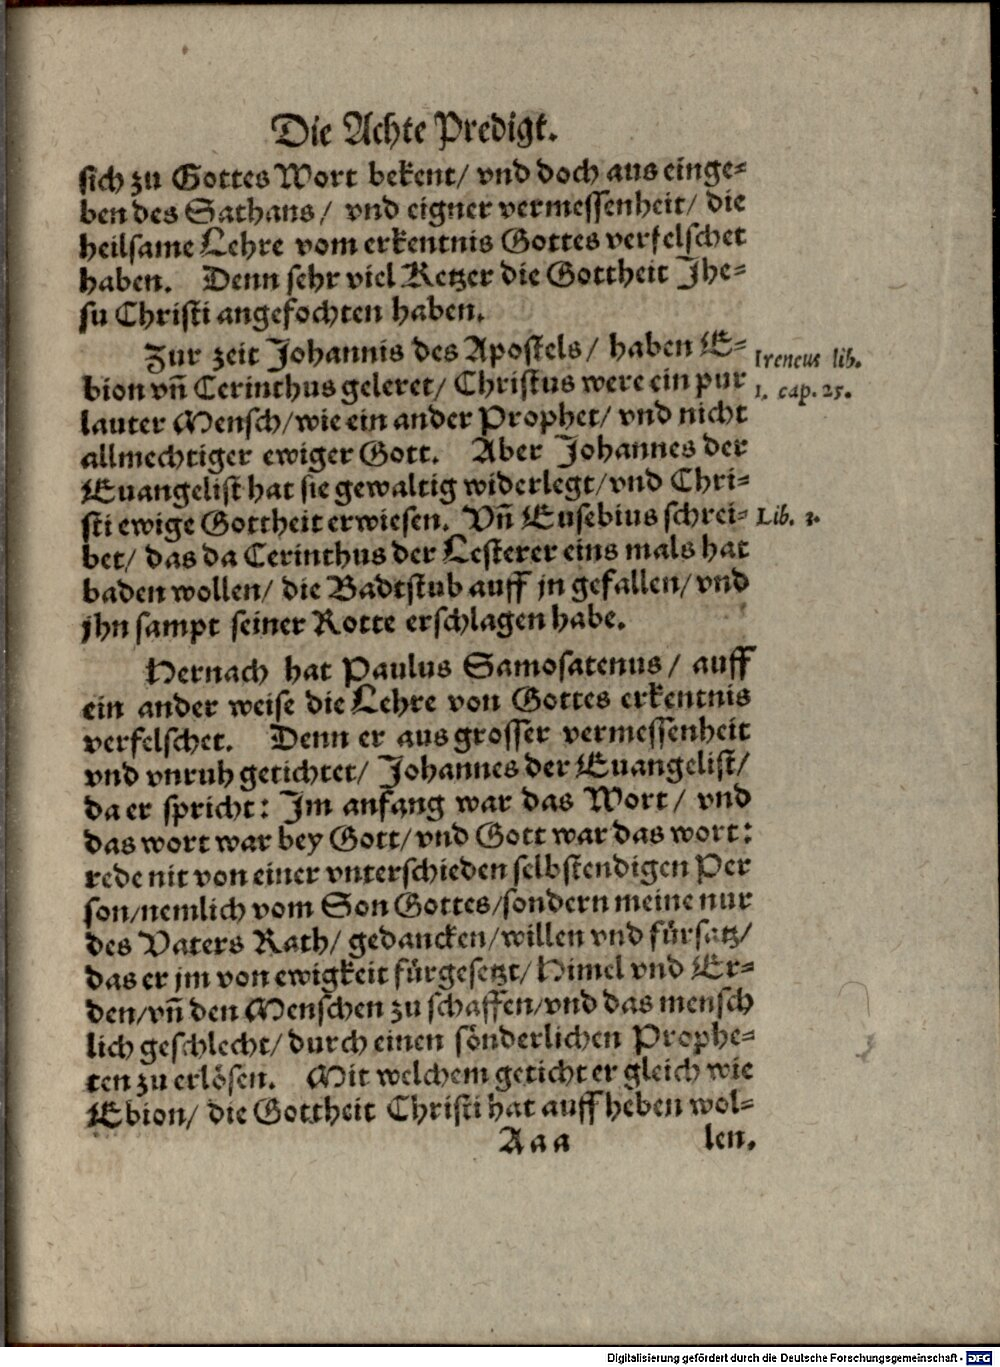 Die Achte Predigt.
sich zu Gottes Wort bekent/ vnd doch aus einge⸗
ben des Sathans/ vnd eigner vermessenheit/ die
heilsame Lehre vom erkentnis Gottes verfelschet
haben. Denn sehr viel Ketzer die Gottheit Jhe⸗
su Christi angefochten haben.
Zur zeit Johannis des Apostels/ haben E⸗
bion vñ Cerinthus geleret/ Christus were ein pur
lauter Mensch/wie ein ander Prophet/ vnd nicht
allmechtiger ewiger Gott. Aber Johannes der
Euangelist hat sie gewaltig widerlegt/vnd Chri⸗
sti ewige Gottheit erwiesen. Vñ Eusebius schrei⸗
bet/ das da Cerinthus der Lesterer eins mals hat
baden wollen/ die Badtstub auff jn gefallen/ vnd
jhn sampt seiner Rotte erschlagen habe.
Ireneus lib.
1. cap. 25.
Lib. 3.
Hernach hat Paulus Samosatenus/ auff
ein ander weise die Lehre von Gottes erkentnis
verfelschet. Denn er aus grosser vermessenheit
vnd vnruh getichtet/ Johannes der Euangelist/
da er spricht: Im anfang war das Wort/ vnd
das wort war bey Gott/vnd Gott war das wort:
rede nit von einer vnterschieden selbstendigen Per
son/nemlich vom Son Gottes/sondern meine nur
des Vaters Rath/ gedancken/willen vnd fürsatz/
das er jm von ewigkeit fürgesetzt/ Himel vnd Er⸗
den/vñ den Menschen zu schaffen/vnd das mensch
lich geschlecht/ durch einen sönderlichen Prophe⸗
ten zu erlösen. Mit welchem geticht er gleich wie
Ebion/ die Gottheit Christi hat auff heben wol⸗
Aaa len.
Digitalisierung gefördert durch die Deutsche Forschungsgemeinschaft - DFG